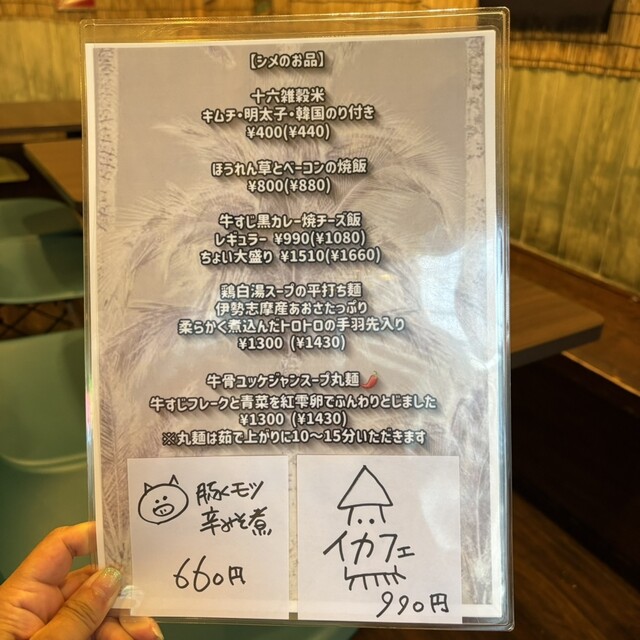 【シメのお品】
十六雑穀米
キムチ・明太子・韓国のり付き
¥400(¥440)
ほうれん草とベーコンの焼飯
¥800(¥880)
牛すじ黒カレー焼チーズ飯
レギュラー ¥990(¥1080)
ちょい大盛り ¥1510(¥1660)
鶏白湯スープの平打ち麺
伊勢志摩産あおさたっぷり
柔らかく煮込んだトロトロの手羽先入り
¥1300 (¥1430)
牛骨ユッケジャンスープ丸麺🌶️
牛すじフレークと青菜を紅雫卵でふんわりとじました
¥1300 (¥1430)
※丸麺は茹で上がりに10〜15分いただきます
豚モツ
辛みそ煮
660円
イカフェ
990円